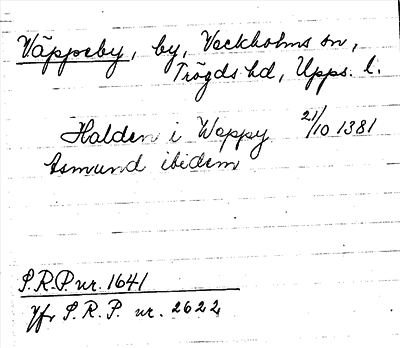 Väppeby, by, Veckholms sn,
Trögds hd, Upps. l.
Halden i Weppy 21/10 1381
Asmund ibidem
S.R.P. nr. 1641
Jfr S.R.P. nr. 2622